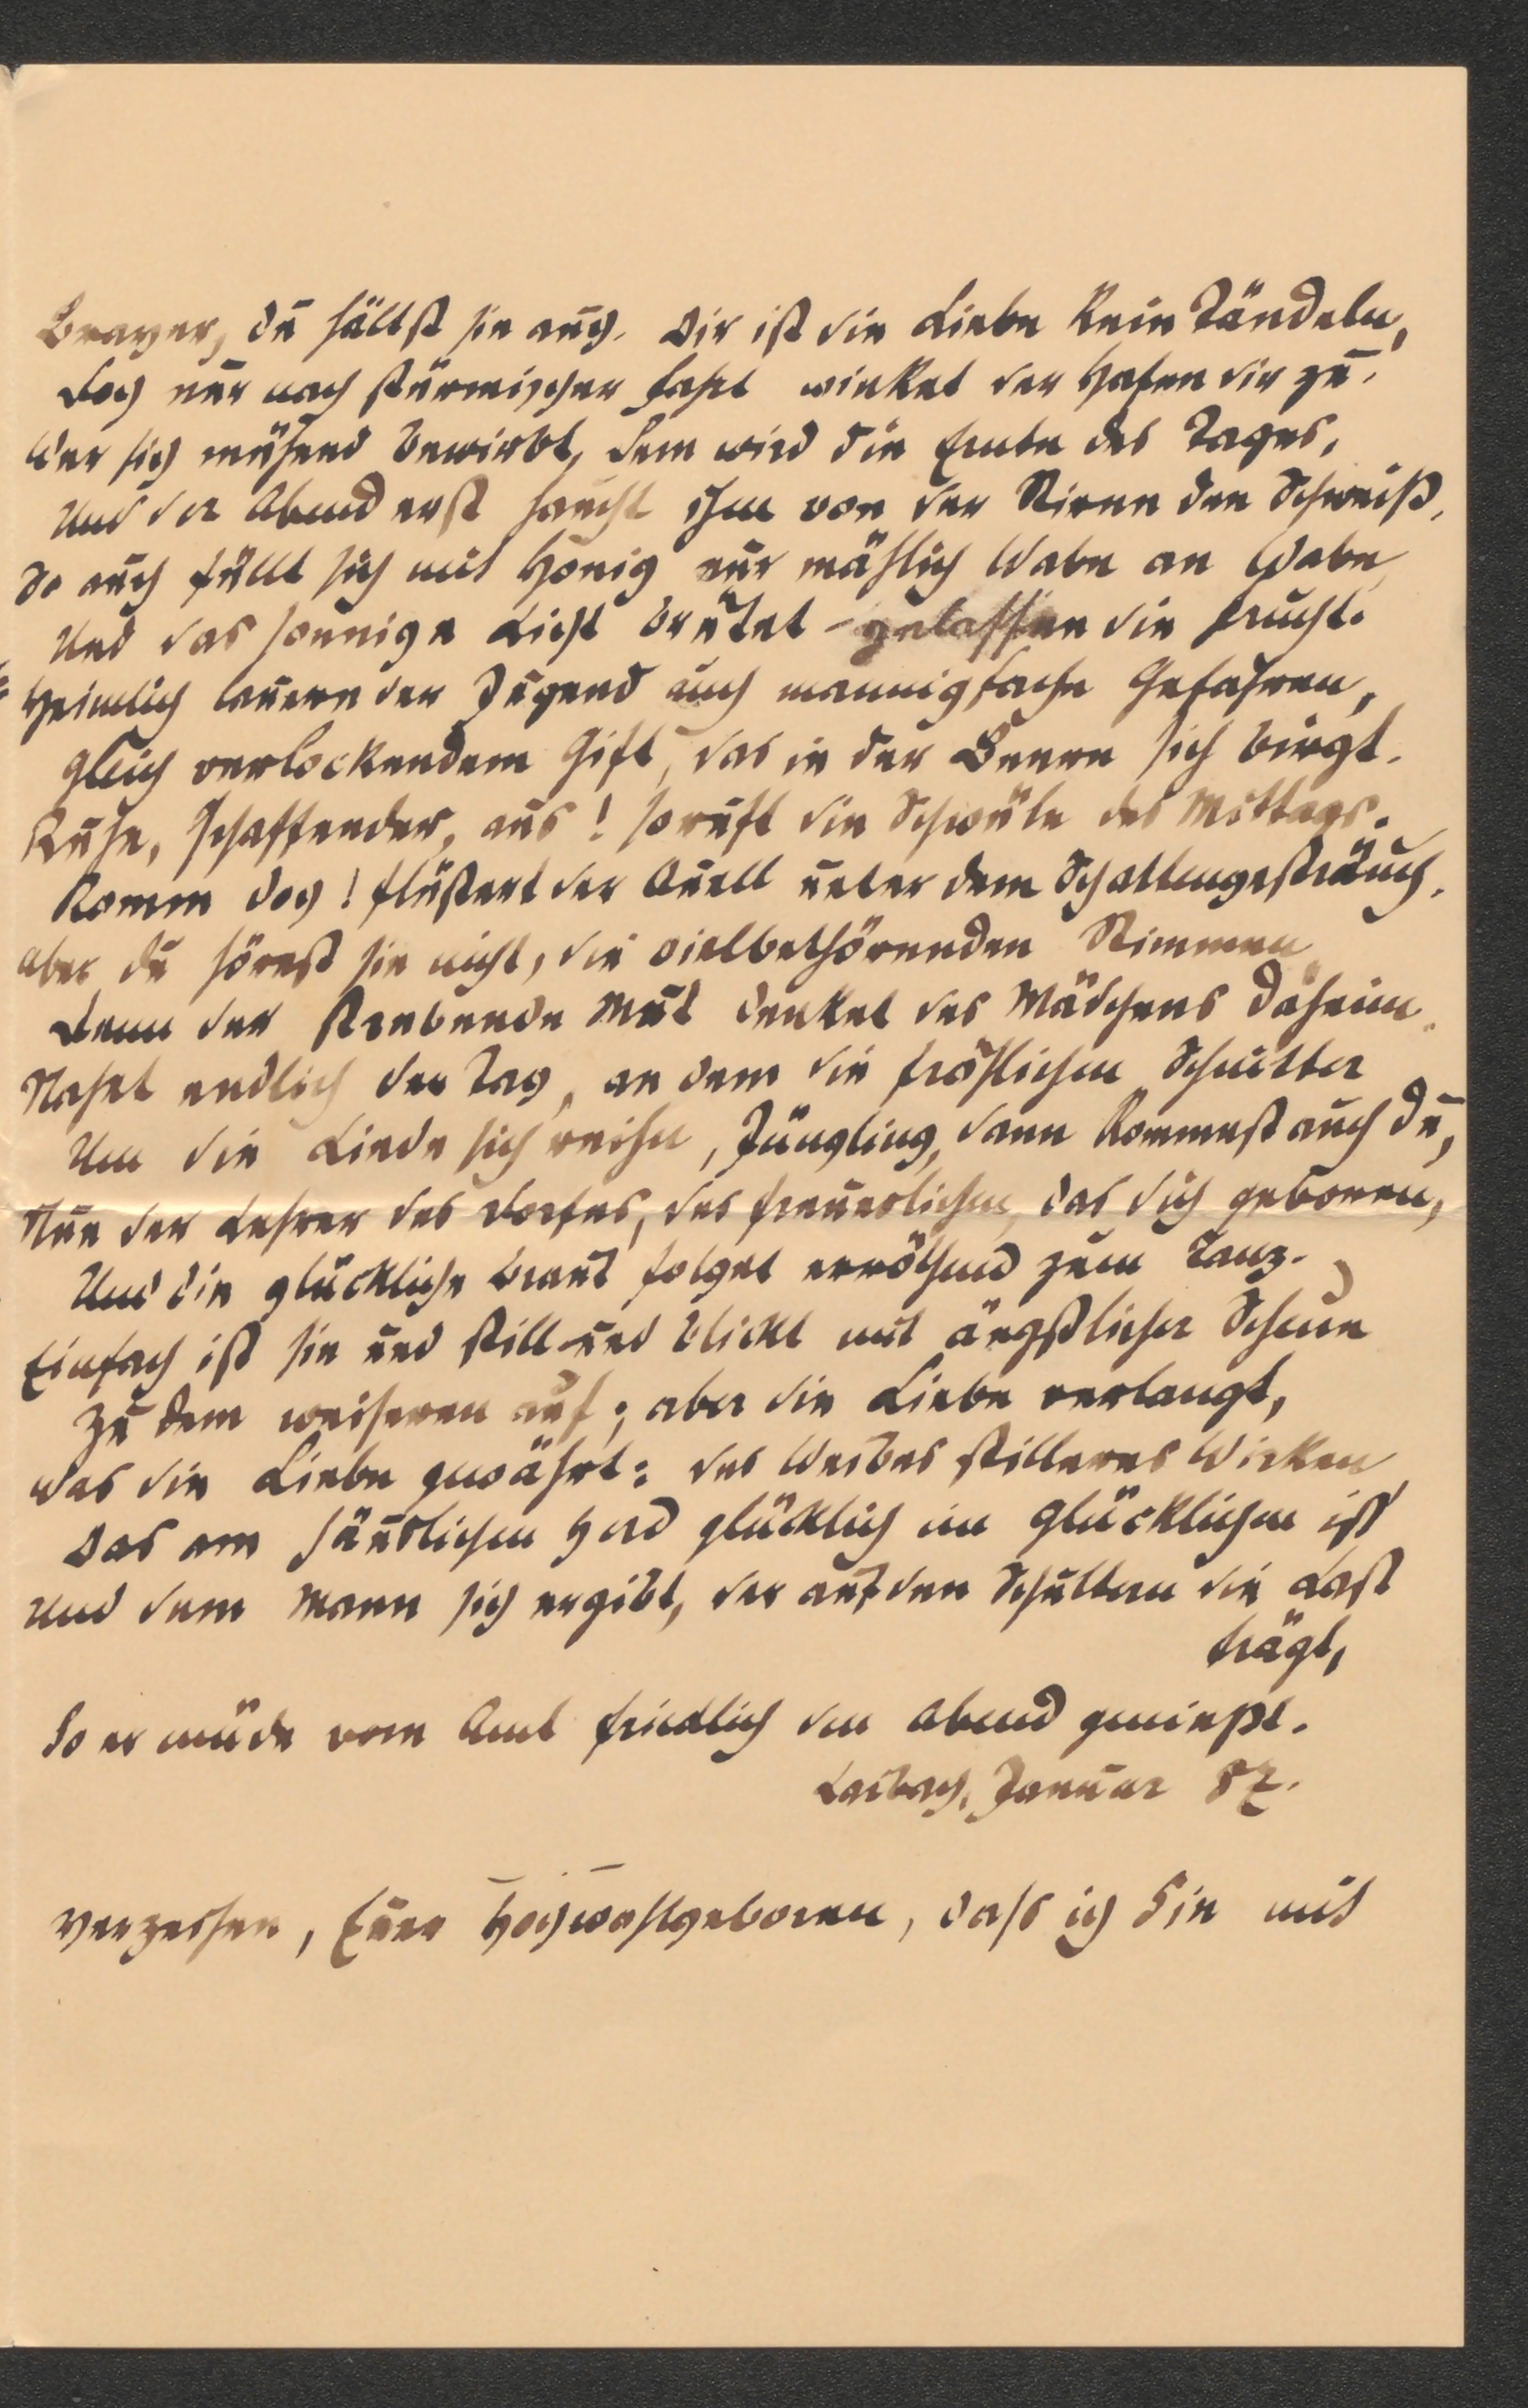 Braver, du hältst sie auch. Dir ist die Liebe kein Tändeln,
Doch nur nach stürmischer Fahrt winket der Hafen dir zu.
Wer sich mühend bewirbt, dem wird die Ernte des Tages,
Und der Abend erst haucht ihm von der Stirne den Schweiß.
So auch füllt sich mit Honig nur mählich Wabe an Wabe,
Und das sonnige Licht brütet gelassen die Frucht.
Heimlich lauern der Jugend auch mannigfache Gefahren,
Gleich verlockendem Gift, das in der Beere sich birgt.
Ruhe, Schaffender, aus! so ruft die Schwüle des Mittags.
Komm doch! flüßert der Quell unter dem Schattengesträuch.
Aber du hörest sie nicht, die vielbethörenden Stimmen,
Denn der strebende Mut denket des Mädchens daheim.
Naht endlich der Tag, an dem die fröhlichen Schnitter
Um die Linde sich reihn, Jüngling, dann kommest auch du,
Nun der Lehrer des Dorfes, des freundlichen, das dich geboren,
Und die glückliche Braut folget erröthend zum Tanz.
Einfach ist sie und still und blickt mit ängstlicher Scheue
Zu dem weiseren auf; aber die Liebe verlangt,
Was die Liebe gewährt: des Weibes stilleres Wirken,
Das am häuslichen Herd glücklich im Glücklichen ist
Und dem Mann sich ergibt, der auf den Schultern die Last
trägt,
So er müde vom Amt friedlich den Abend genießt.
Laibach, Januar 82.
Verzeihen, Euer Hochwohlgeboren, dass ich Sie mit